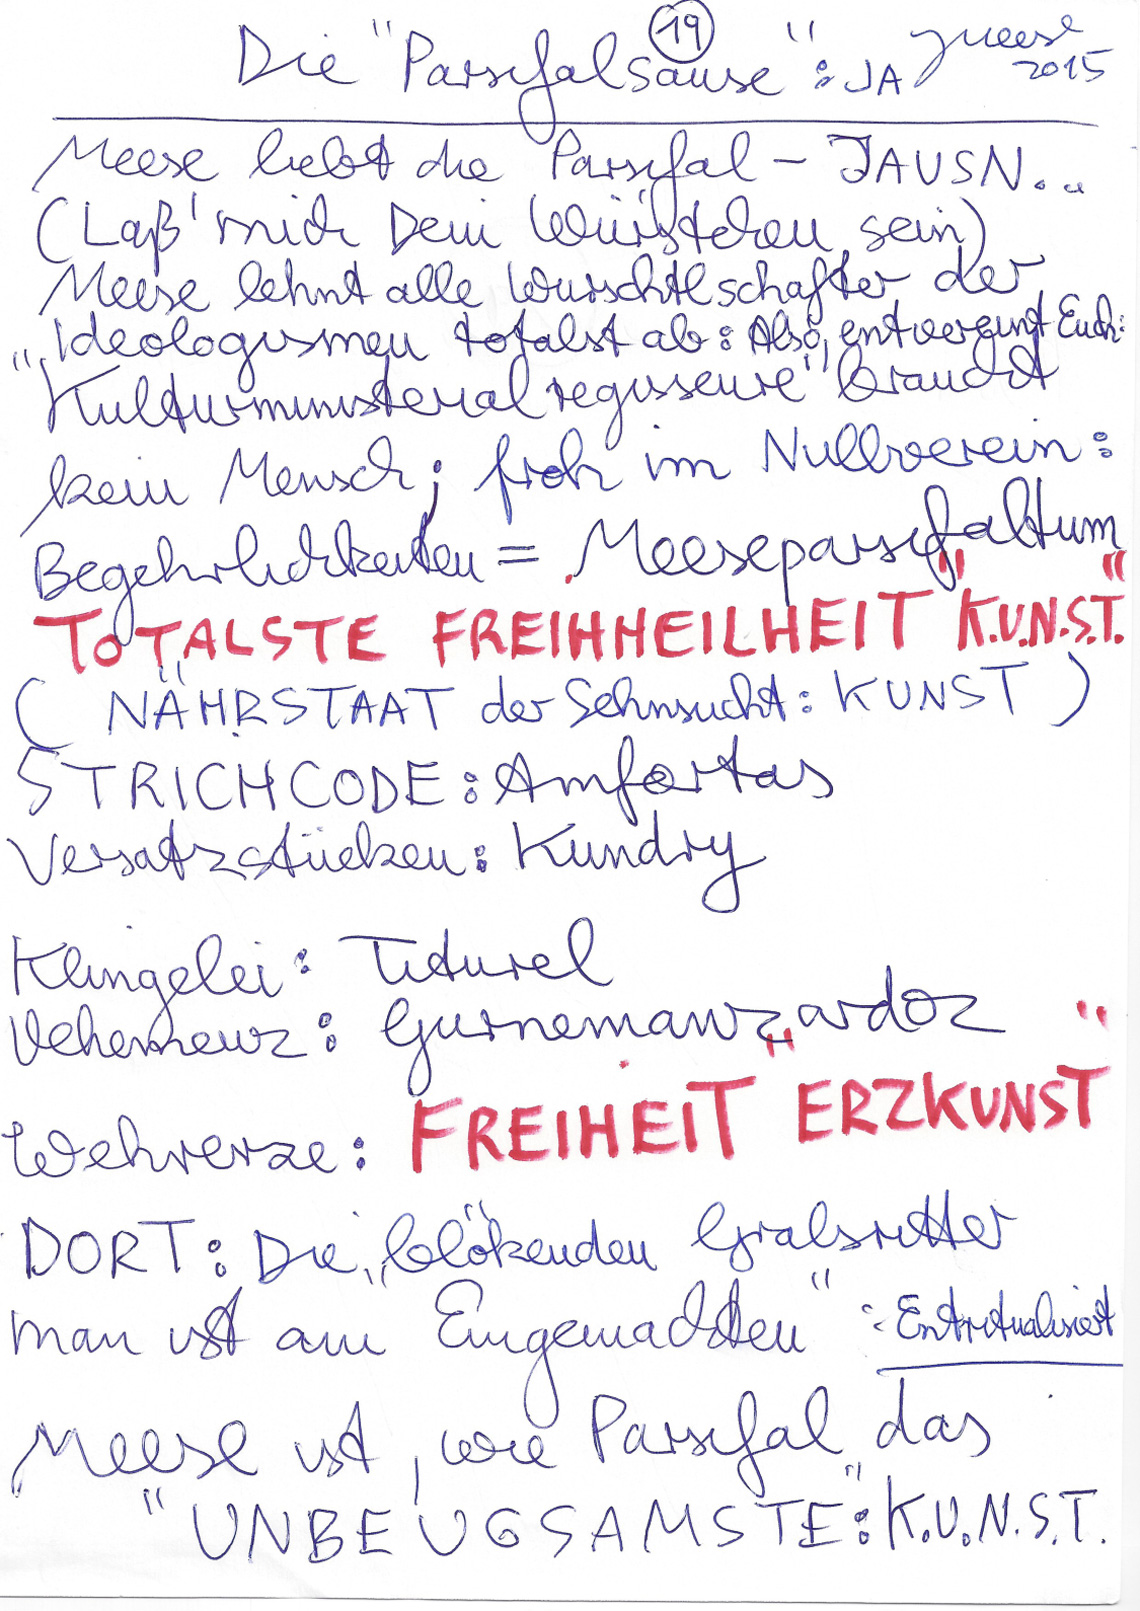 19
Die "Parsifalsause": JA JMeese
2015
Meese liebt die Parsifal – JAUSN...
(Laß' mich Dein Würstchen sein)
Meese lehnt alle Wurschtlschafter der
Ideologismen totalst ab: Also, entvereint Euch:
"Kulturministerialregisseure" braucht
kein Mensch; froh im Nullverein:
Begehrlichkeiten = Meeseparsifaltum
TOTALSTE FREIHHEILHEIT "K.U.N.S.T."
(NÄHRSTAAT der Sehnsucht: KUNST)
STRICHCODE: Amfortas
Versatzstücken: Kundry
Klingelei: Titurel
Vehemenz: Gurnemanzardoz
Wehrerze: FREIHEIT "ERZKUNST"
DORT: Die "blökenden Gralsritter
man ist am Eingemachten": Entritualisiert
Meese ist, wie Parsifal das
"UNBEUGSAMSTE": K.U.N.S.T.